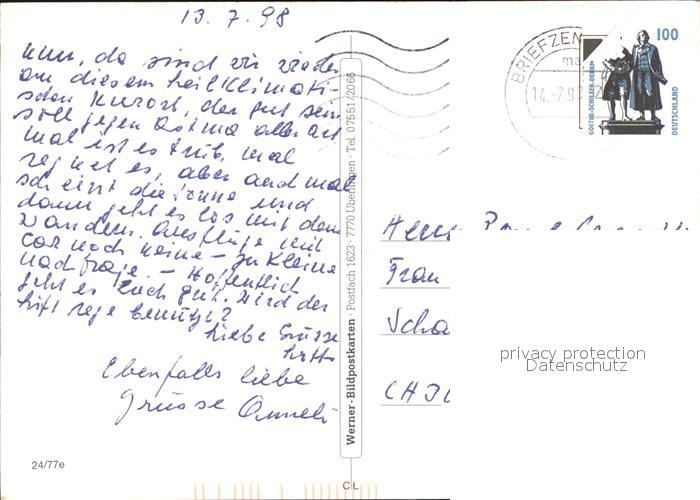 13.7.98
nun, da sind wir wieder
an diesem heilklimati-
schen Kurort, der gut sein
soll gegen Astma aller art
mal ist es trüb, mal
regnet es, aber and mal
scheint die Sonne und
dann geht es los mit dem
Wandern. Ausflüge mit
Car noch keine - zu kleine
nachfrage. - Hoffentlich
geht es Euch gut. Wird der
lift rege benutzt?
Liebe Grüsse
Ebenfalls liebe
Grüsse Anneli
24/77e
Werner-Bildpostkarten · Postfach 1623 · 7770 Überlingen · Tel. 07551/2066
CL
BRIEFZEN
ma
14.-7.98
GOETHE-SCHILLER-DENKM
100
DEUTSCHLAND
Frau
privacy protection
Datenschutz